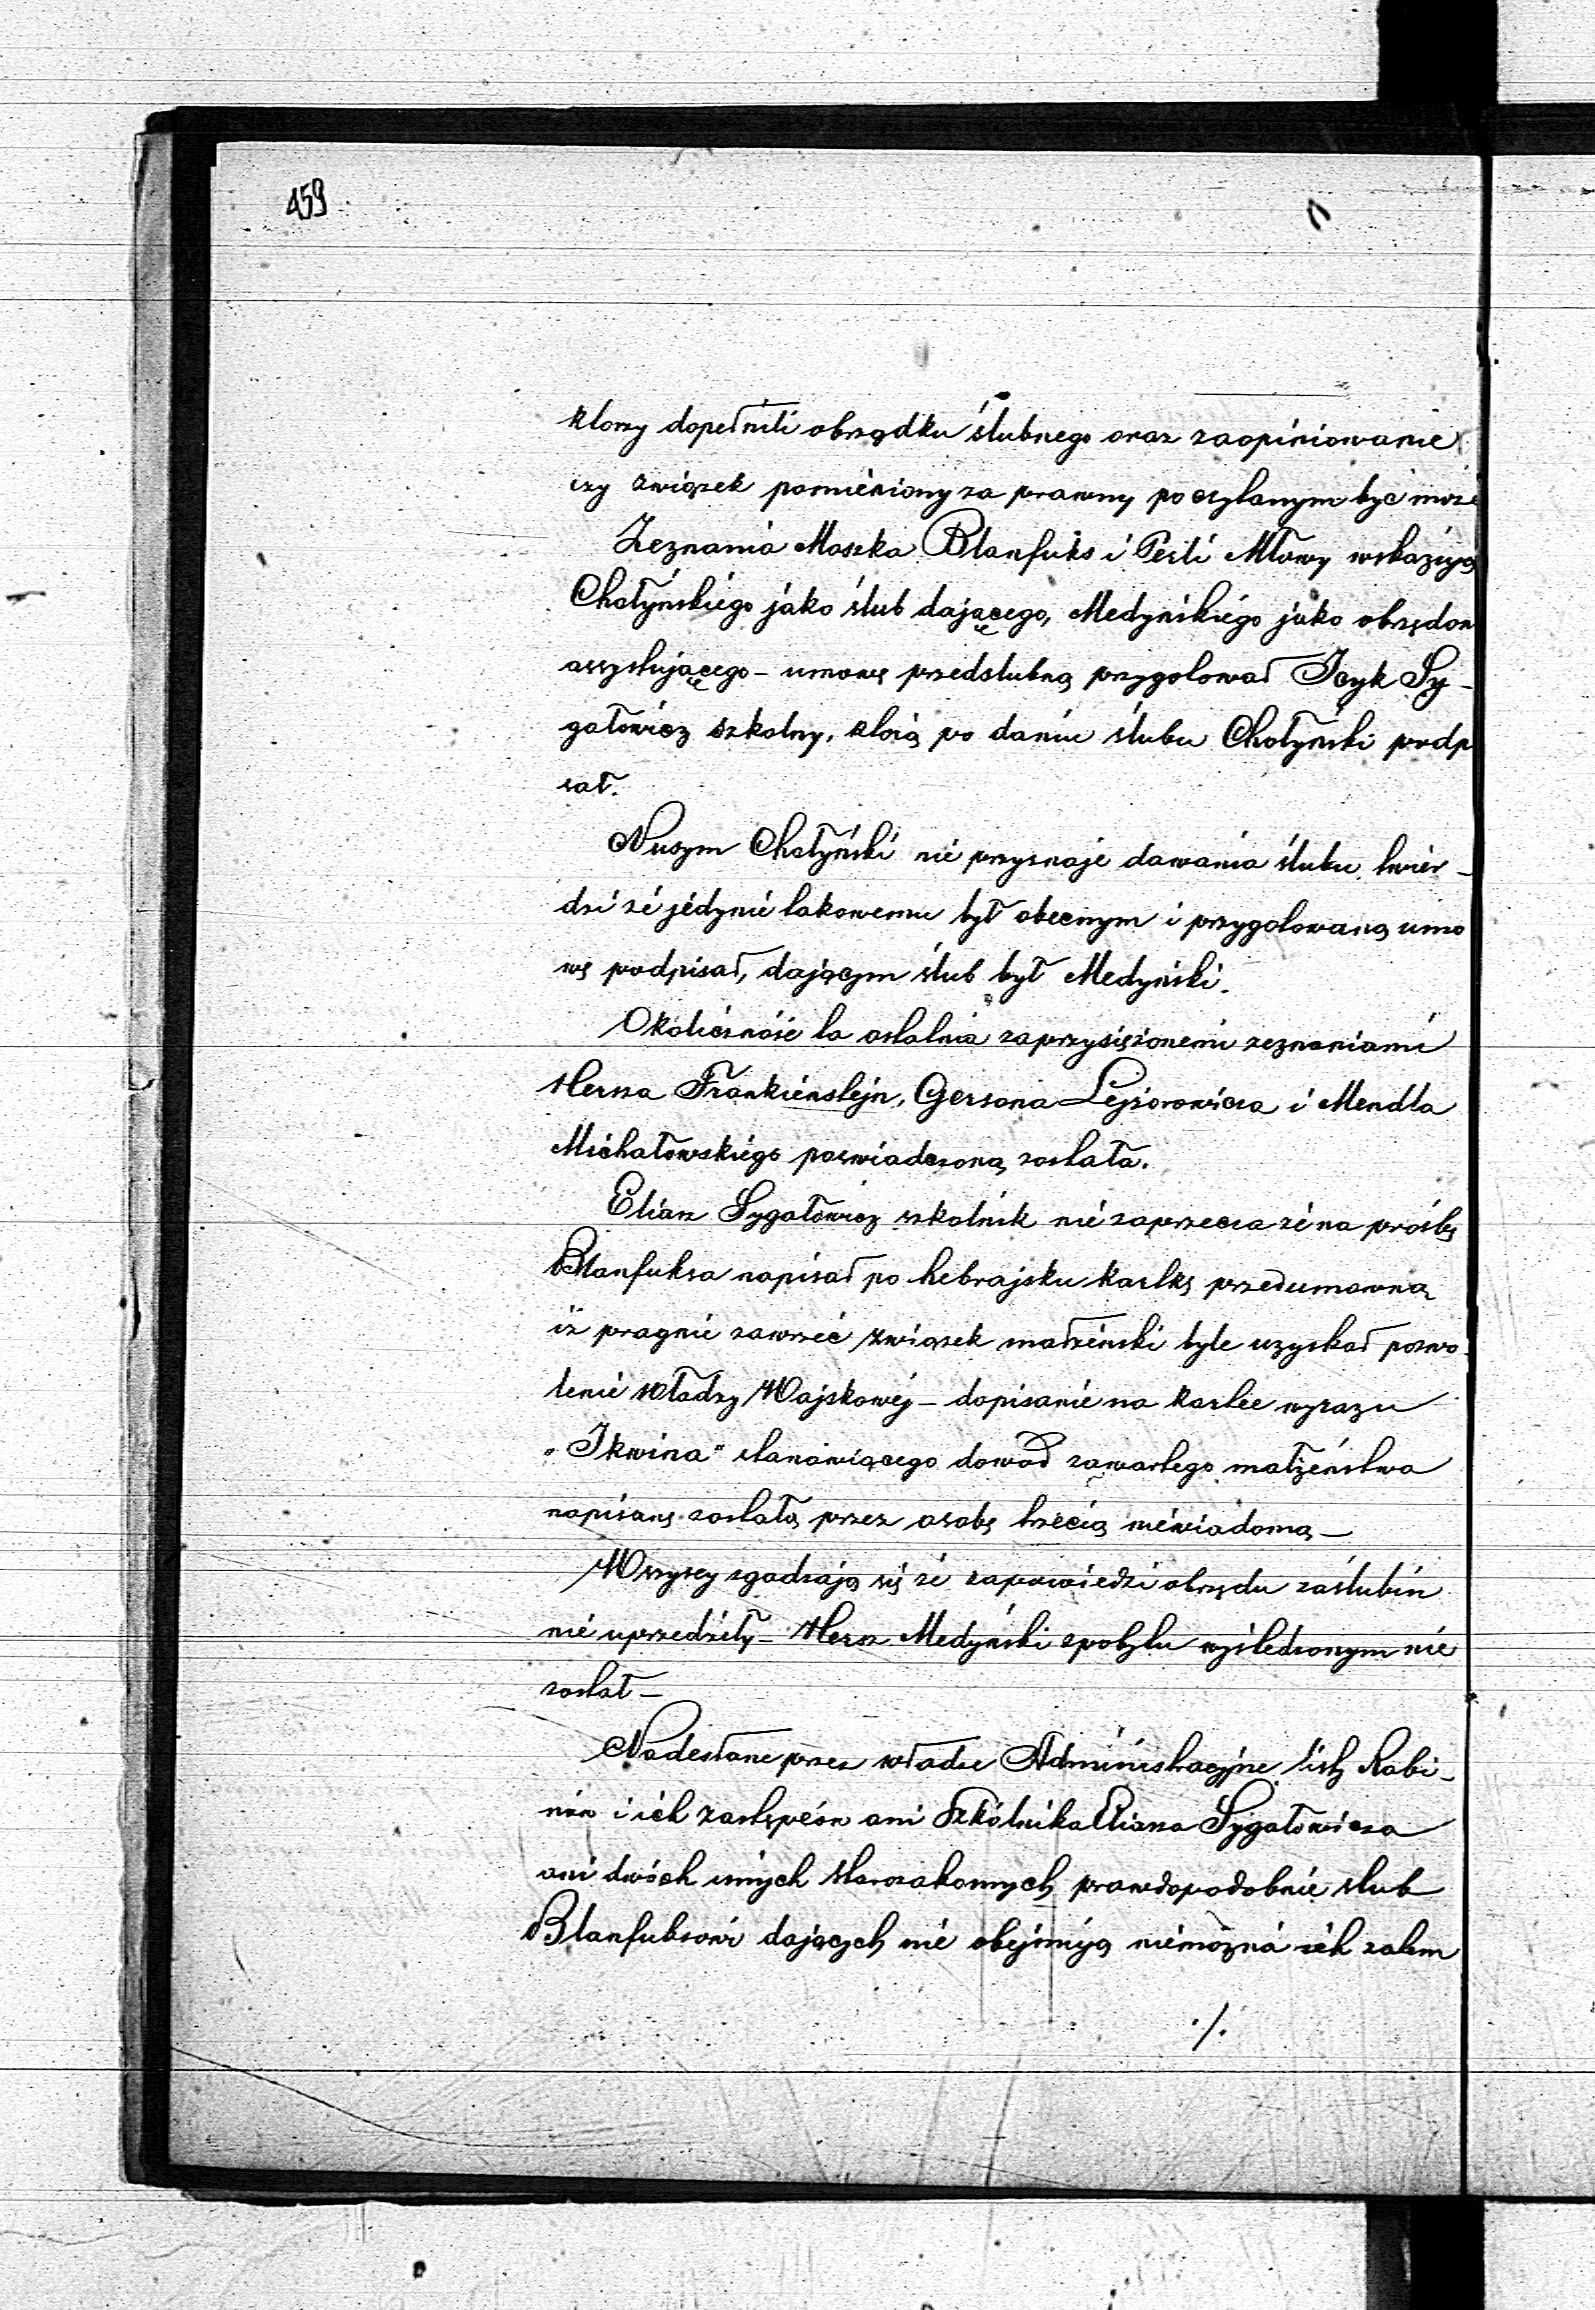 459
ktorzy dopełnili obrządku ślubnego oraz zaopiniowanie
czy związek pomieniony za prawny poczytanym być może
Zeznania Moszka Blanfuks i Perli Mławy wskazują
Chołyńskiego jako ślub dającego, Medyńskiego jako obrzędow
assystującego – umowę przedslubną przygotował Icyk Sy-
gałowicz szkolny, ktorą po daniu ślubu Chołyński podp
sał.
Nusym Chołyński nie przyznaje dawania ślubu, twier-
dzi że jedynie takowemu był obecnym i przygotowaną umo
wę podpisał, dającym ślub był Medyński.
Okoliczność ta ostatnia zaprzysiężonemi zeznaniami
Hersza Frankiensztejn, Gersona Lejzorowicza i Mendla
Michałowskiego poswiadczoną została.
Eliasz Sygałowicz szkolnik nie zaprzecza że na prośbę
Blanfuksa napisał po hebrajsku kartkę przedumowną
iż pragnie zawrzeć związek małżeński byle uzyskał pozwo-
lenie Władzy Wojskowej – dopisanie na kartce wyrazu
„Ikwina" stanowiącego dowód zawartego małżeństwa
napisane zostało przez osobę trzecią niewiadomą –
Wszyscy zgadzają się że zapowiedzi obrzędu zaślubin
nie uprzedziły – Hersz Medyński z pobytu wyśledzonym nie
został –
Nadesłane przez władze Administracyjne listy Rabi-
nów i ich zastępców ani Szkólnika Eliasza Sygałowicza
ani dwóch innych starozakonnych prawdopodobnie slub
Blanfuksowi dających nie obejmują niemożna ich zatem
./.